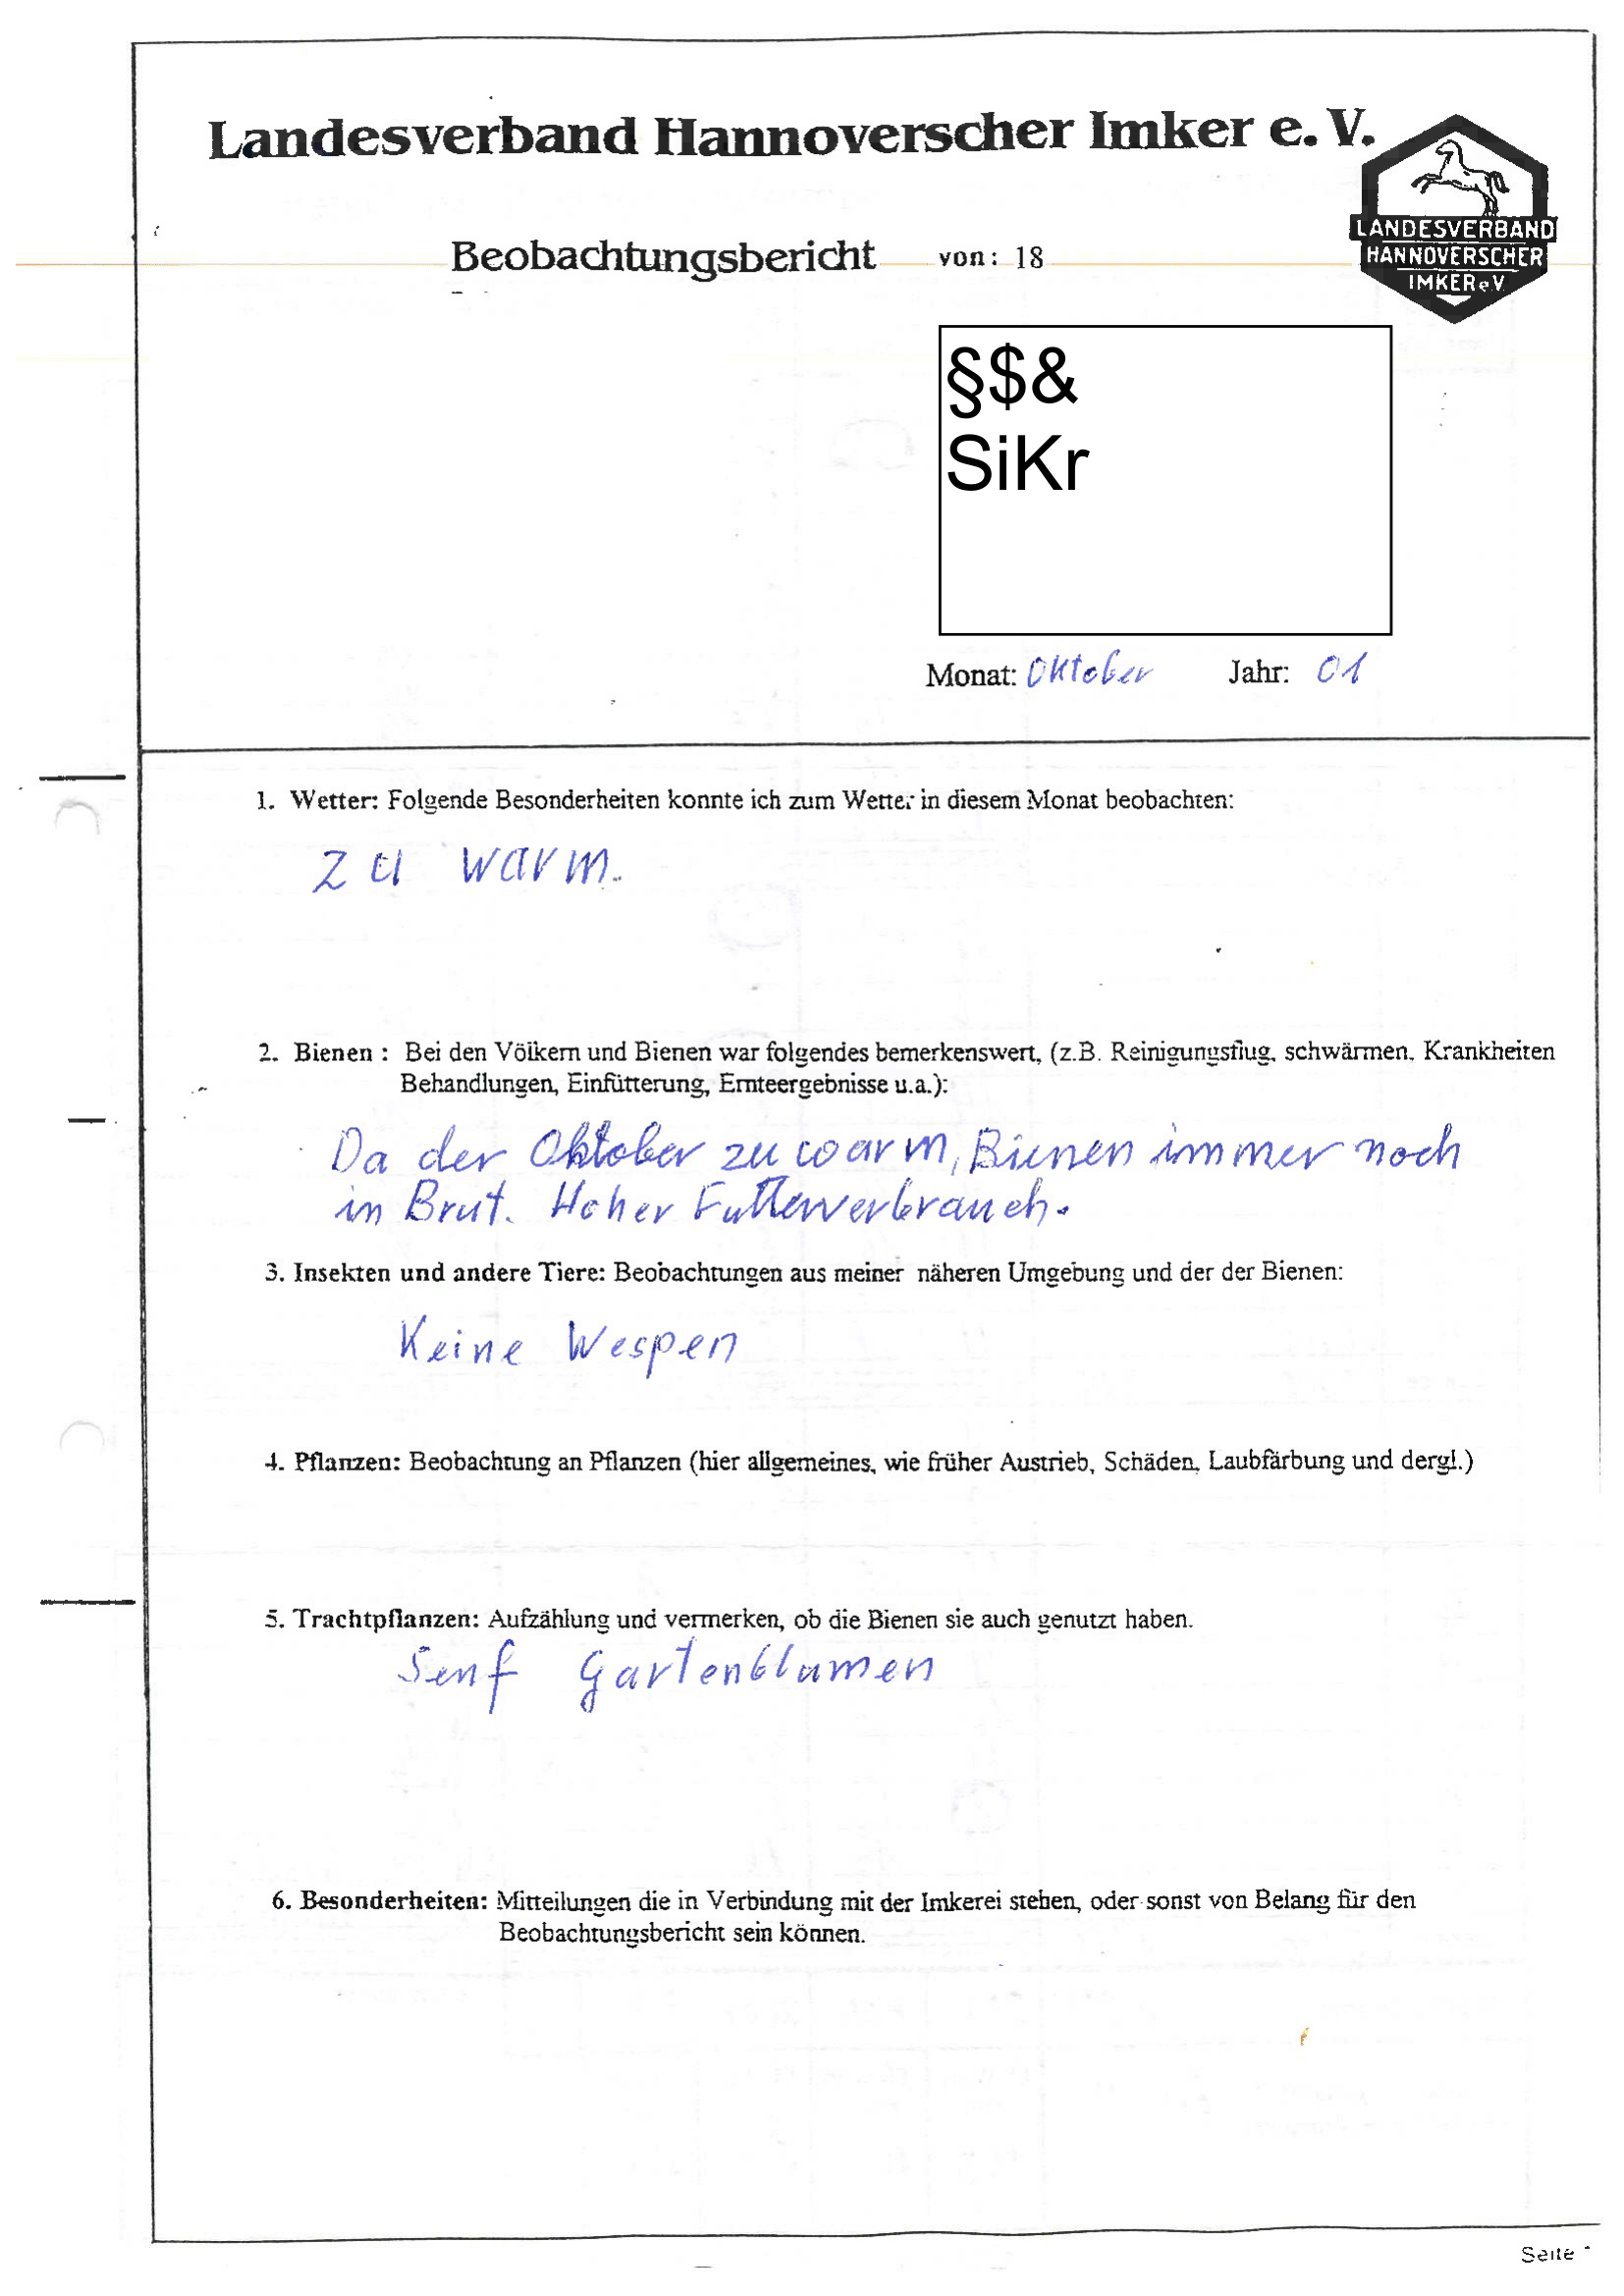 Landesverband Hannoverscher Imker e. V.
LANDESVERBAND
HANNOVERSCHER
IMKER e.V.
Beobachtungsbericht von: 18
§$&
SiKr
Monat: Oktober Jahr: 01
1. Wetter: Folgende Besonderheiten konnte ich zum Wetter in diesem Monat beobachten:
zu warm.
2. Bienen : Bei den Völkern und Bienen war folgendes bemerkenswert, (z.B. Reinigungsflug, schwärmen, Krankheiten
Behandlungen, Einfütterung, Ernteergebnisse u.a.):
Da der Oktober zu warm, Bienen immer noch
in Brut. Hoher Futterverbrauch.
3. Insekten und andere Tiere: Beobachtungen aus meiner näheren Umgebung und der der Bienen:
Keine Wespen
4. Pflanzen: Beobachtung an Pflanzen (hier allgemeines, wie früher Austrieb, Schäden, Laubfärbung und dergl.)
5. Trachtpflanzen: Aufzählung und vermerken, ob die Bienen sie auch genutzt haben.
Senf Gartenblumen
6. Besonderheiten: Mitteilungen die in Verbindung mit der Imkerei stehen, oder sonst von Belang für den
Beobachtungsbericht sein können.
Seite